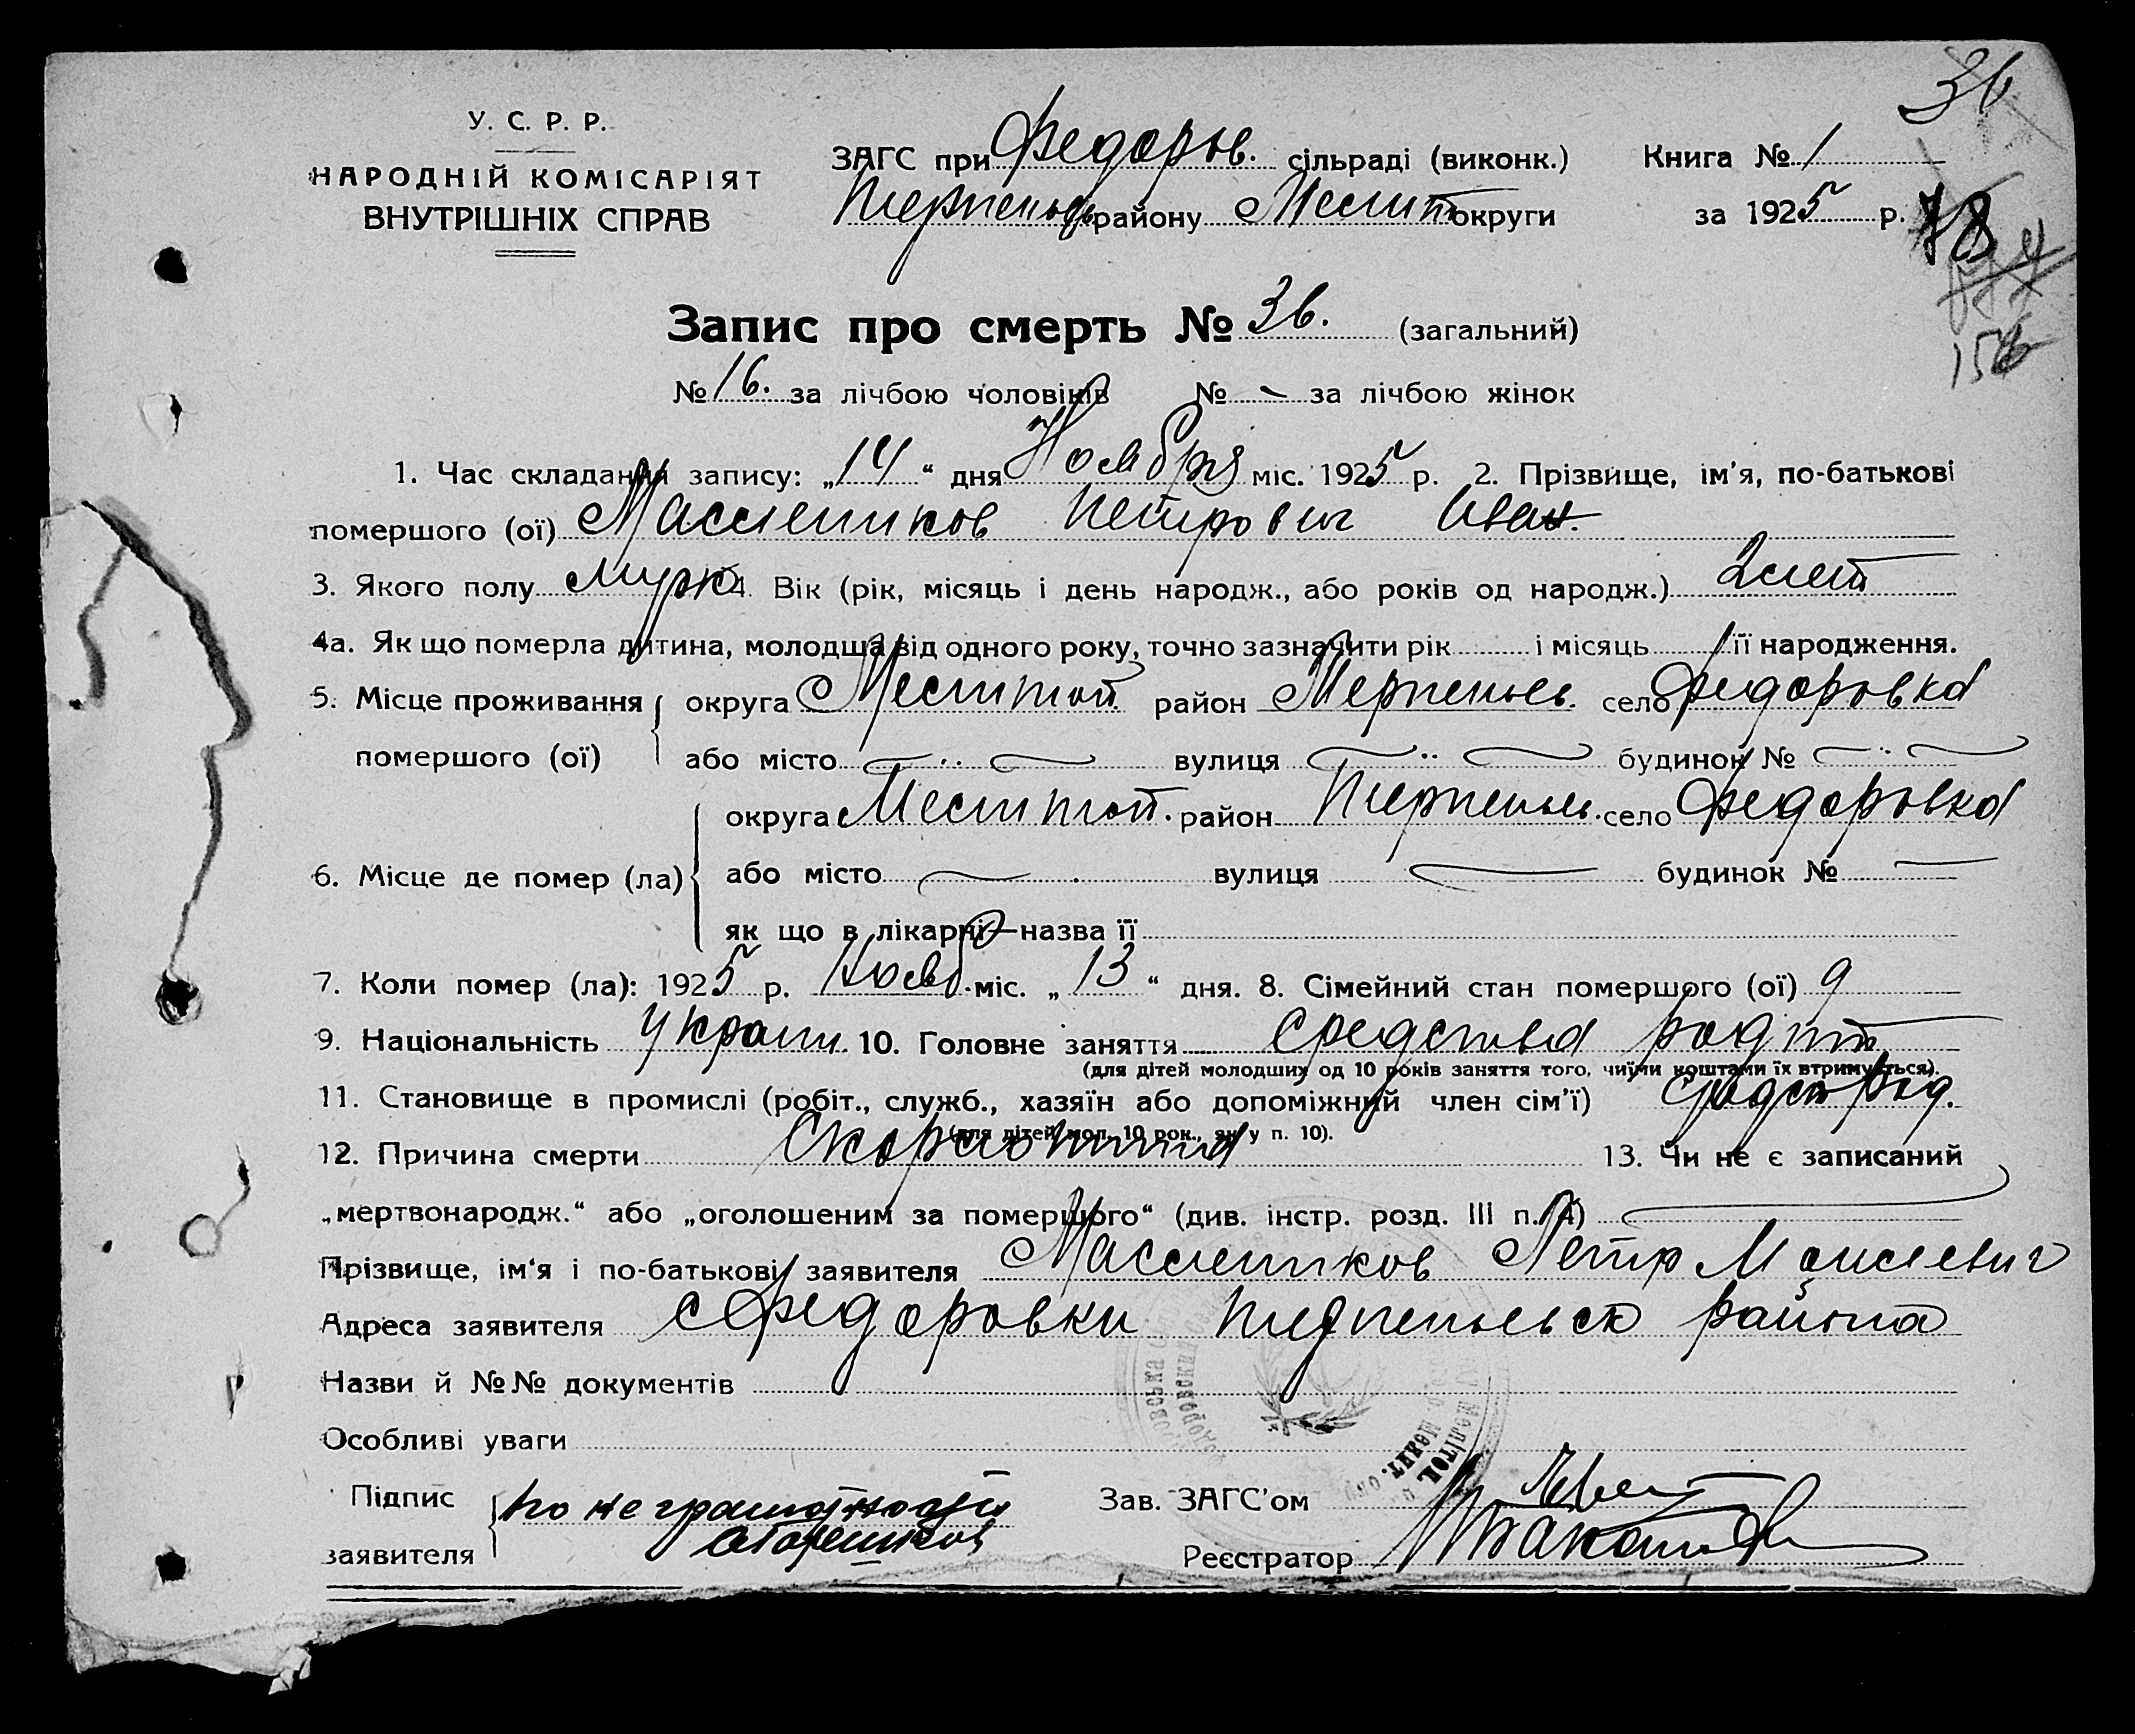 36
У. С. Р. Р.
НАРОДНІЙ КОМІСАРІЯТ
ВНУТРІШНІХ СПРАВ
ЗАГС при Федоров. сільраді (виконк.) Книга № 1
району Мелит округи за 1925 р.
78
Запис про смерть № 36. (загальний)
№ 16. за лічбою чоловіків № - за лічбою жінок
1. Час складання запису: „14“ дня Ноября міс. 1925 р. 2. Прізвище, ім'я, по-батькові
помершого (ої) Масленников Петрович Иван.
3. Якого полу мужс 4. Вік (рік, місяць і день народж., або років од народж.) 2 лет
4а. Як що померла дитина, молодша від одного року, точно зазначити рік і місяць її народження.
5. Місце проживання округа Мелитоп. район село Федоровка
помершого (ої) або місто вулиця будинок №
округа Мелитоп. район село Федоровка
6. Місце де помер (ла) або місто вулиця будинок №
як що в лікарні—назва її
7. Коли помер (ла): 1925 р. Нояб. міс. „13“ дня. 8. Сімейний стан помершого (ої)
9. Національність Украин. 10. Головне заняття Средства родит
(для дітей молодших од 10 років заняття того, чиїми коштами їх втримується).
11. Становище в промислі (робіт., служб., хазяїн або допоміжний член сім'ї) Средст Род.
(для дітей мол. 10 рок., як у п. 10).
12. Причина смерти Скорлотина 13. Чи не є записаний
„мертвонародж.“ або „оголошеним за помершого“ (див. інстр. розд. III п. 14)
Прізвище, ім'я і по-батькові заявителя Масленников Петр Моисеевич
Адреса заявителя с Федоровки района
Назви й №№ документів
Особливі уваги
Підпис по не грамотности
Зав. ЗАГС'ом
заявителя
Реєстратор